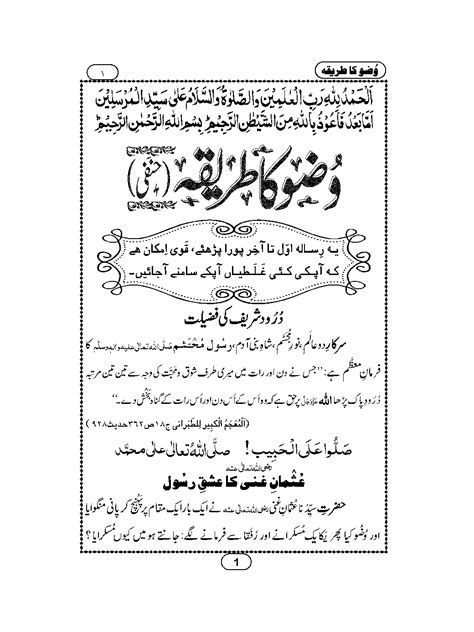 وُضو کا طریقہ
۱
اَلْحَمْدُ لِلّٰهِ رَبِّ الْعٰلَمِیْنَ وَالصَّلٰوةُ وَالسَّلَامُ عَلٰی سَیِّدِ الْمُرْسَلِیْنَ
اَمَّا بَعْدُ فَاَعُوْذُ بِاللّٰهِ مِنَ الشَّیْطٰنِ الرَّجِیْمِ بِسْمِ اللّٰهِ الرَّحْمٰنِ الرَّحِیْمِ
وُضو کا طریقہ (حنفی)
یہ رِسالہ اوّل تا آخِر پورا پڑھئے، قَوی اِمکان ھے
کہ آپکی کئی غَلَطیاں آپکے سامنے آجائیں۔
دُرُود شریف کی فضیلت
سرکارِ دو عالَم، نورِ مُجَسَّم، شاہِ بنی آدم، رسولِ مُحتَشَم صلی اللہ تعالیٰ علیہ واٰلہٖ وسلم کا
فرمانِ معظَّم ہے: ”جس نے دن اور رات میں میری طرف شوق و مَحَبَّت کی وجہ سے تین تین مرتبہ
دُرُودِ پاک پڑھا اللہ عزوجل پر حق ہے کہ وہ اُس کے اُس دن اور اُس رات کے گناہ بخش دے۔“
(اَلْمُعْجَمُ الْكَبِير لِلطَّبَرانی ج۱۸ ص۳۶۲ حدیث ۹۲۸)
صَلُّوا عَلَی الْحَبِیب! صلَّی اللہُ تعالٰی علٰی محمَّد
عُثمانِ غنی رضی اللہ تعالیٰ عنہ کا عشقِ رسول
حضرتِ سیِّدُنا عثمانِ غنی رضی اللہ تعالیٰ عنہ نے ایک بار ایک مقام پر پَہُنچ کر پانی منگوایا
اور وُضو کیا پھر یَکایک مُسکرانے اور رُفَقا سے فرمانے لگے: جانتے ہو میں کیوں مُسکرایا؟
1